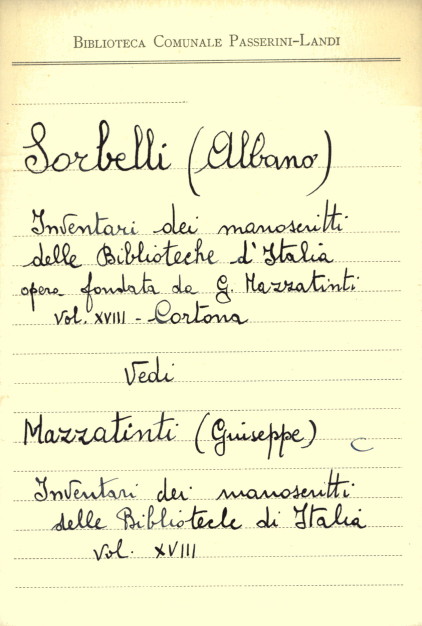 Biblioteca Comunale Passerini-Landi
Sorbelli (Albano)
Inventari dei manoscritti
delle Biblioteche d'Italia
opera fondata da G. Mazzatinti
Vol. XVIII - Cortona
Vedi
Mazzatinti (Guiseppe)
C
Inventari dei manoscritti
delle Bibliotecle di Italia
Vol. XVIII